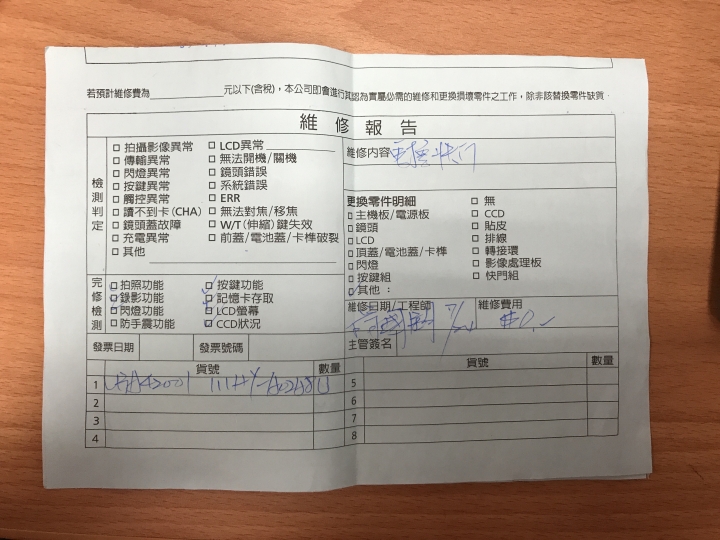 若預計維修費為 元以下(含稅)，本公司即會進行其認為實屬必需的維修和更換損壞零件之工作，除非該替換零件缺貨
維修報告
檢測判定
□ 拍攝影像異常 □ LCD異常
□ 傳輸異常 □ 無法開機/關機
□ 閃燈異常 □ 鏡頭錯誤
□ 按鍵異常 □ 系統錯誤
□ 觸控異常 □ ERR
□ 讀不到卡(CHA) □ 無法對焦/移焦
□ 鏡頭蓋故障 □ W/T(伸縮)鍵失效
□ 充電異常 □ 前蓋/電池蓋/卡榫破裂
□ 其他
維修內容 更換快門
更換零件明細 □ 無
□ 主機板/電源板 □ CCD
□ 鏡頭 □ 貼皮
□ LCD □ 排線
□ 頂蓋/電池蓋/卡榫 □ 轉接環
□ 閃燈 □ 影像處理板
□ 按鍵組 □ 快門組
□ 其他：
完修檢測
□ 拍照功能 □ 按鍵功能
□ 錄影功能 □ 記憶卡存取
□ 閃燈功能 □ LCD螢幕
□ 防手震功能 □ CCD狀況
維修日期/工程師
維修費用
主管簽名
發票日期 發票號碼
貨號 數量
1
2
3
4
貨號 數量
5
6
7
8